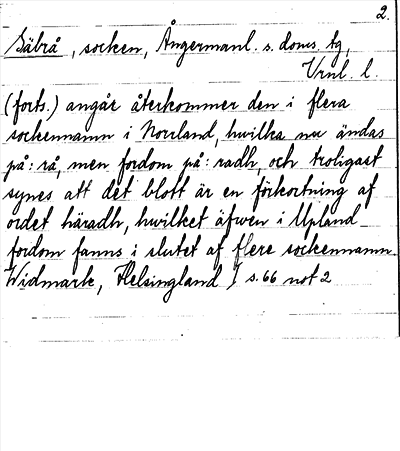 2.
Säbrå, socken, Ångermanl. s. doms. tg,
Vrnl. l.
(forts.) angår återkommer den i flera
sockennamn i Norrland, hwilka nu ändas
på: rå, men fordom på: radh, och troligast
synes att det blott är en förkortning af
ordet häradh, hwilket äfwen i Upland
fordom fanns i slutet af flere sockennamn.
Widmark, Helsingland I s. 66 not 2